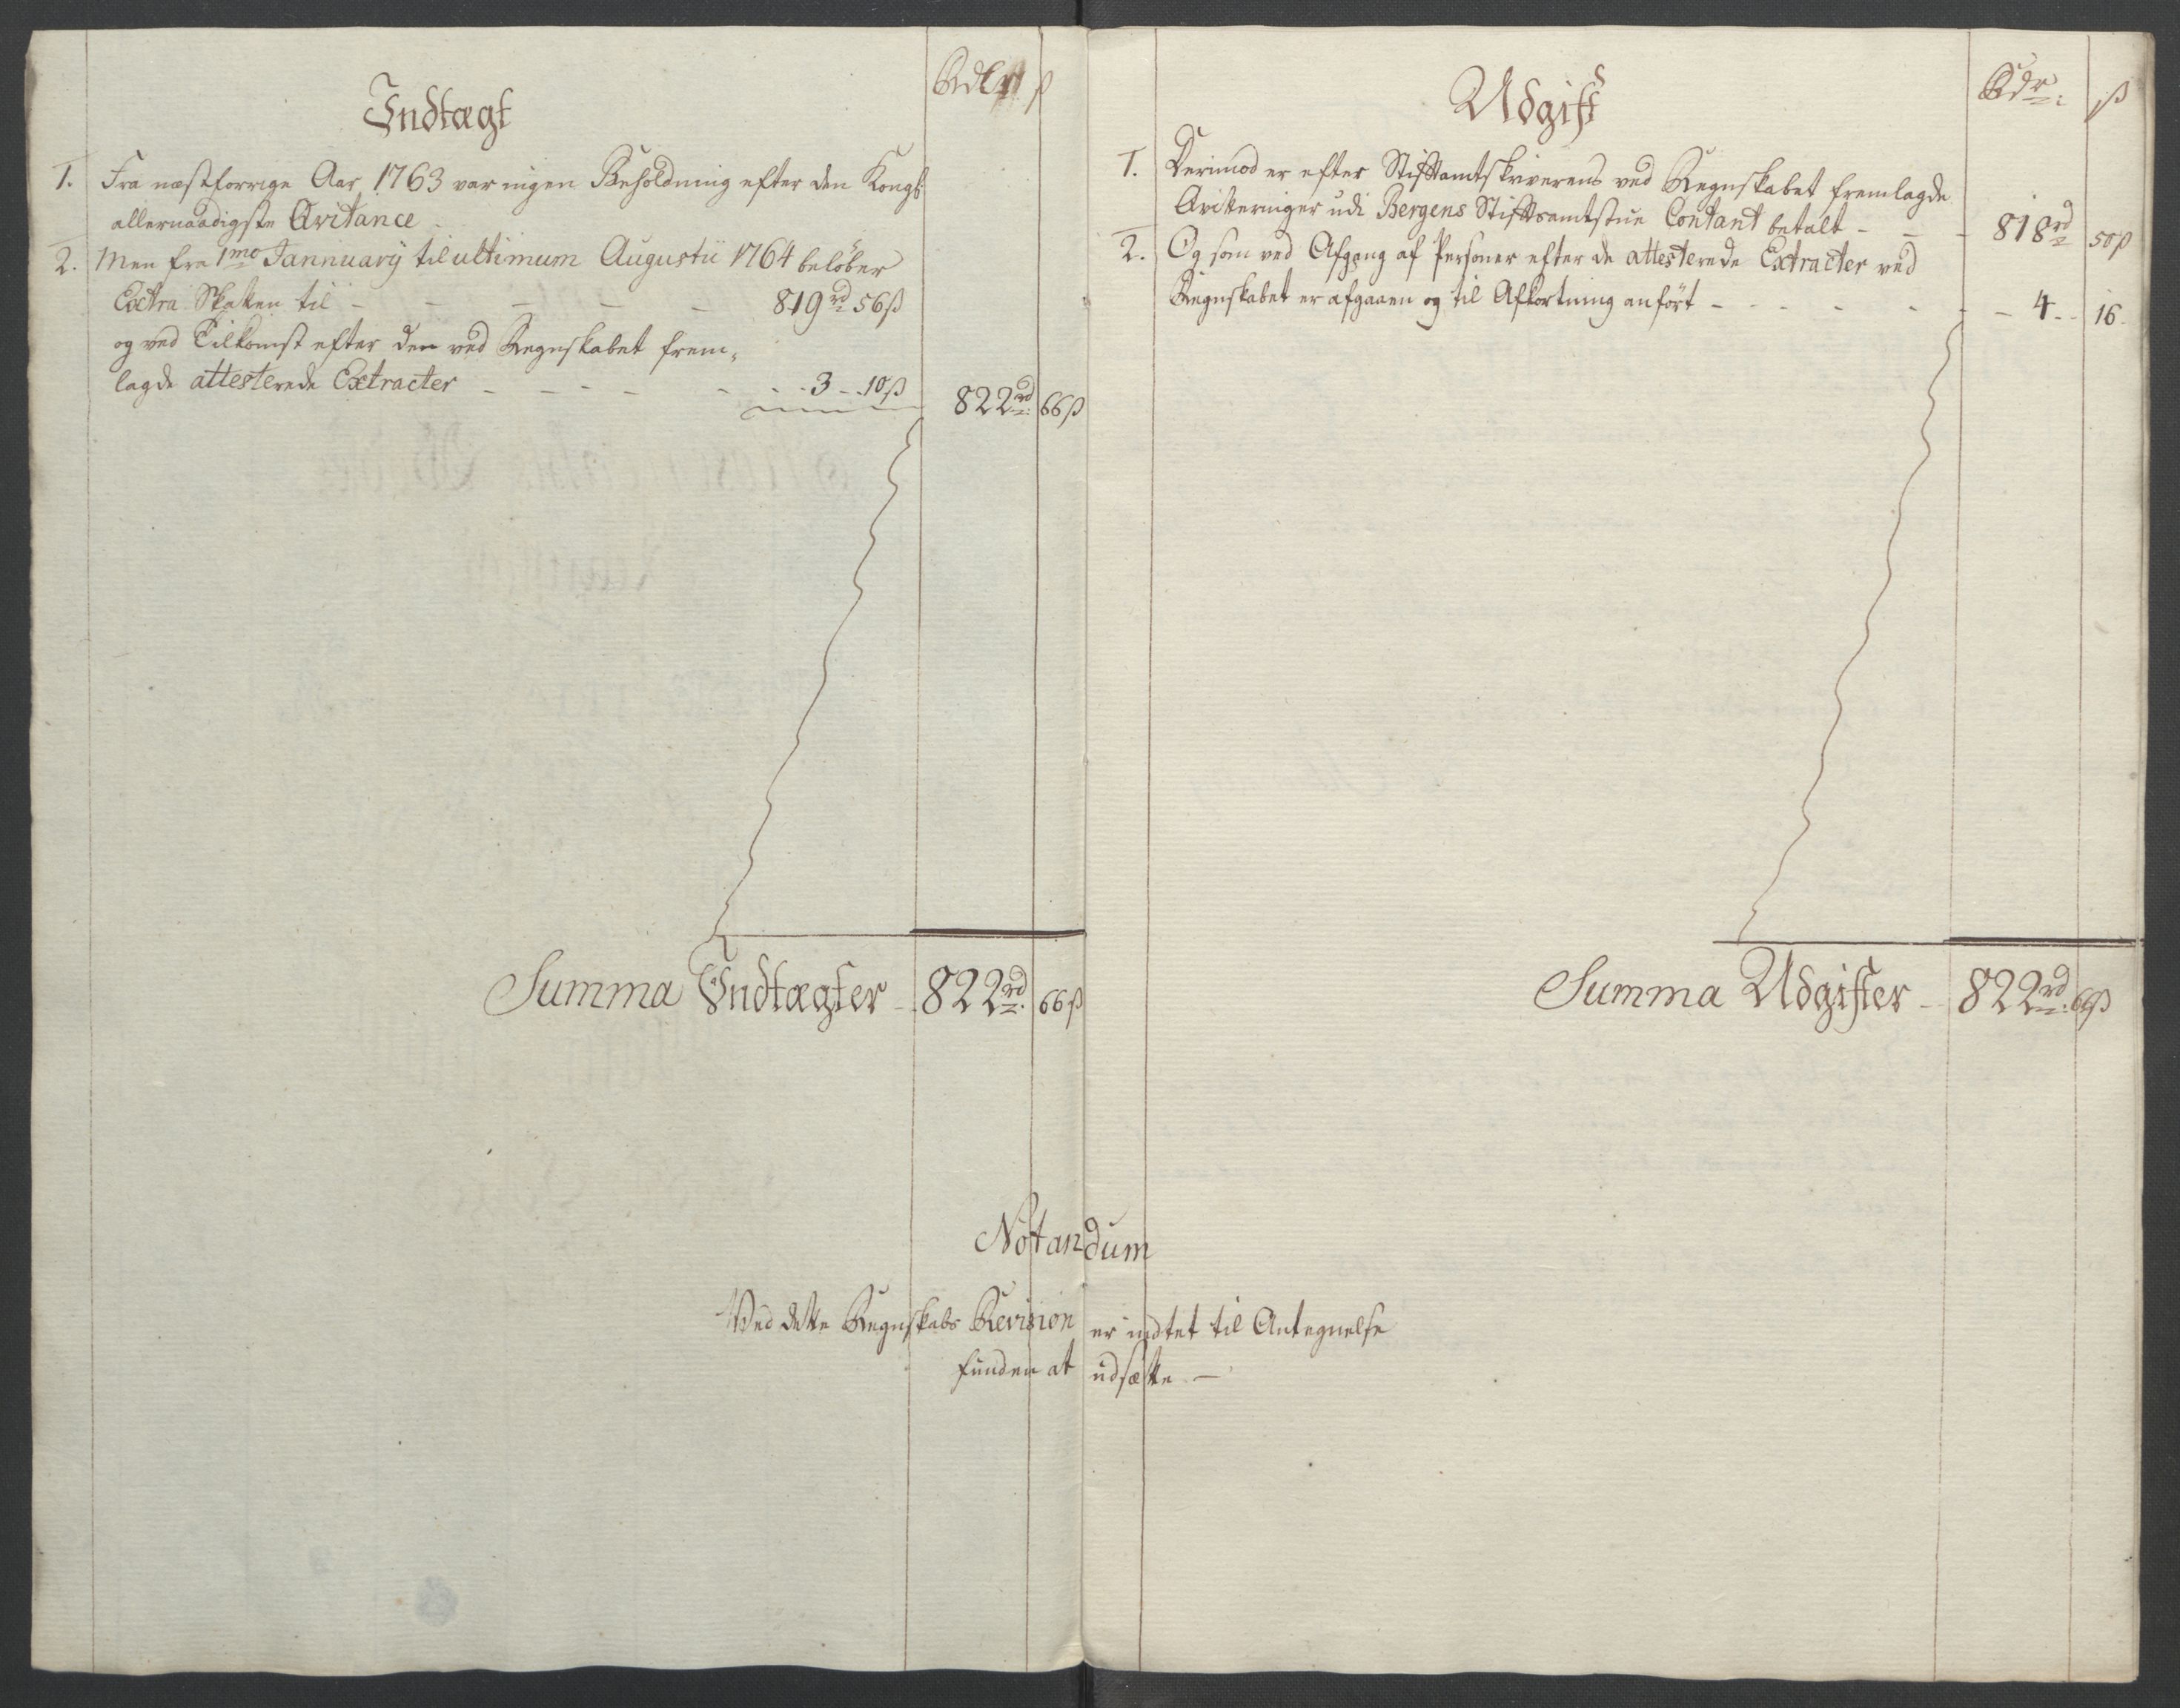 Indtægt
Rdlr ß
1. Fra næstforrige Aar 1763 var ingen Beholdning efter den Kongl:
allernaadigste Qvitance
2. Men fra 1mo Jannuary til ultimum Augustii 1764 beløber
Extra Skatten til - - - - 819 rd 56 ß
og ved Tilkomst efter den ved Regnskabet frem„
lagde attesterede Extracter - - - - - 3 - 10 ß 822 rd: 66 ß
Summa Indtægter - 822 rd: 66 ß
Udgift
Rdr: ß
1. Derimod er efter Stiftamtskriverens ved Regnskabet fremlagde
Qvitteringer udi Bergens Stiftsamtstue Contant betalt - - - 818 rd 50 ß
2. Og som ved Afgang af Personer efter de attesterede Extracter ved
Regnskabet er afgaaen og til Afkortning anført - - - - - - 4 - - 16
Summa Udgifter - 822 rd: 66 ß
Notandum
Ved dette Regnskabs Revision er indtet til Antegnelse
funden at udsætte -